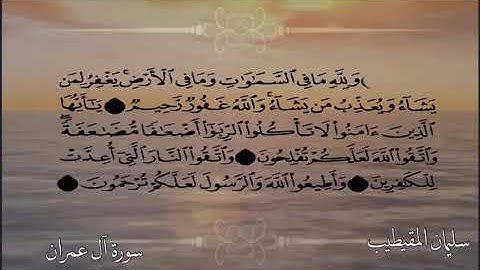 وَلِلَّهِ مَا فِي ٱلسَّمَٰوَٰتِ وَمَا فِي ٱلۡأَرۡضِۚ يَغۡفِرُ لِمَن
يَشَآءُ وَيُعَذِّبُ مَن يَشَآءُۚ وَٱللَّهُ غَفُورٞ رَّحِيمٞ ۝ يَٰٓأَيُّهَا
ٱلَّذِينَ ءَامَنُواْ لَا تَأۡكُلُواْ ٱلرِّبَوٰٓاْ أَضۡعَٰفٗا مُّضَٰعَفَةٗۖ
وَٱتَّقُواْ ٱللَّهَ لَعَلَّكُمۡ تُفۡلِحُونَ ۝ وَٱتَّقُواْ ٱلنَّارَ ٱلَّتِيٓ أُعِدَّتۡ
لِلۡكَٰفِرِينَ ۝ وَأَطِيعُواْ ٱللَّهَ وَٱلرَّسُولَ لَعَلَّكُمۡ تُرۡحَمُونَ ۝
سليمان المقيطيب
سورة آل عمران